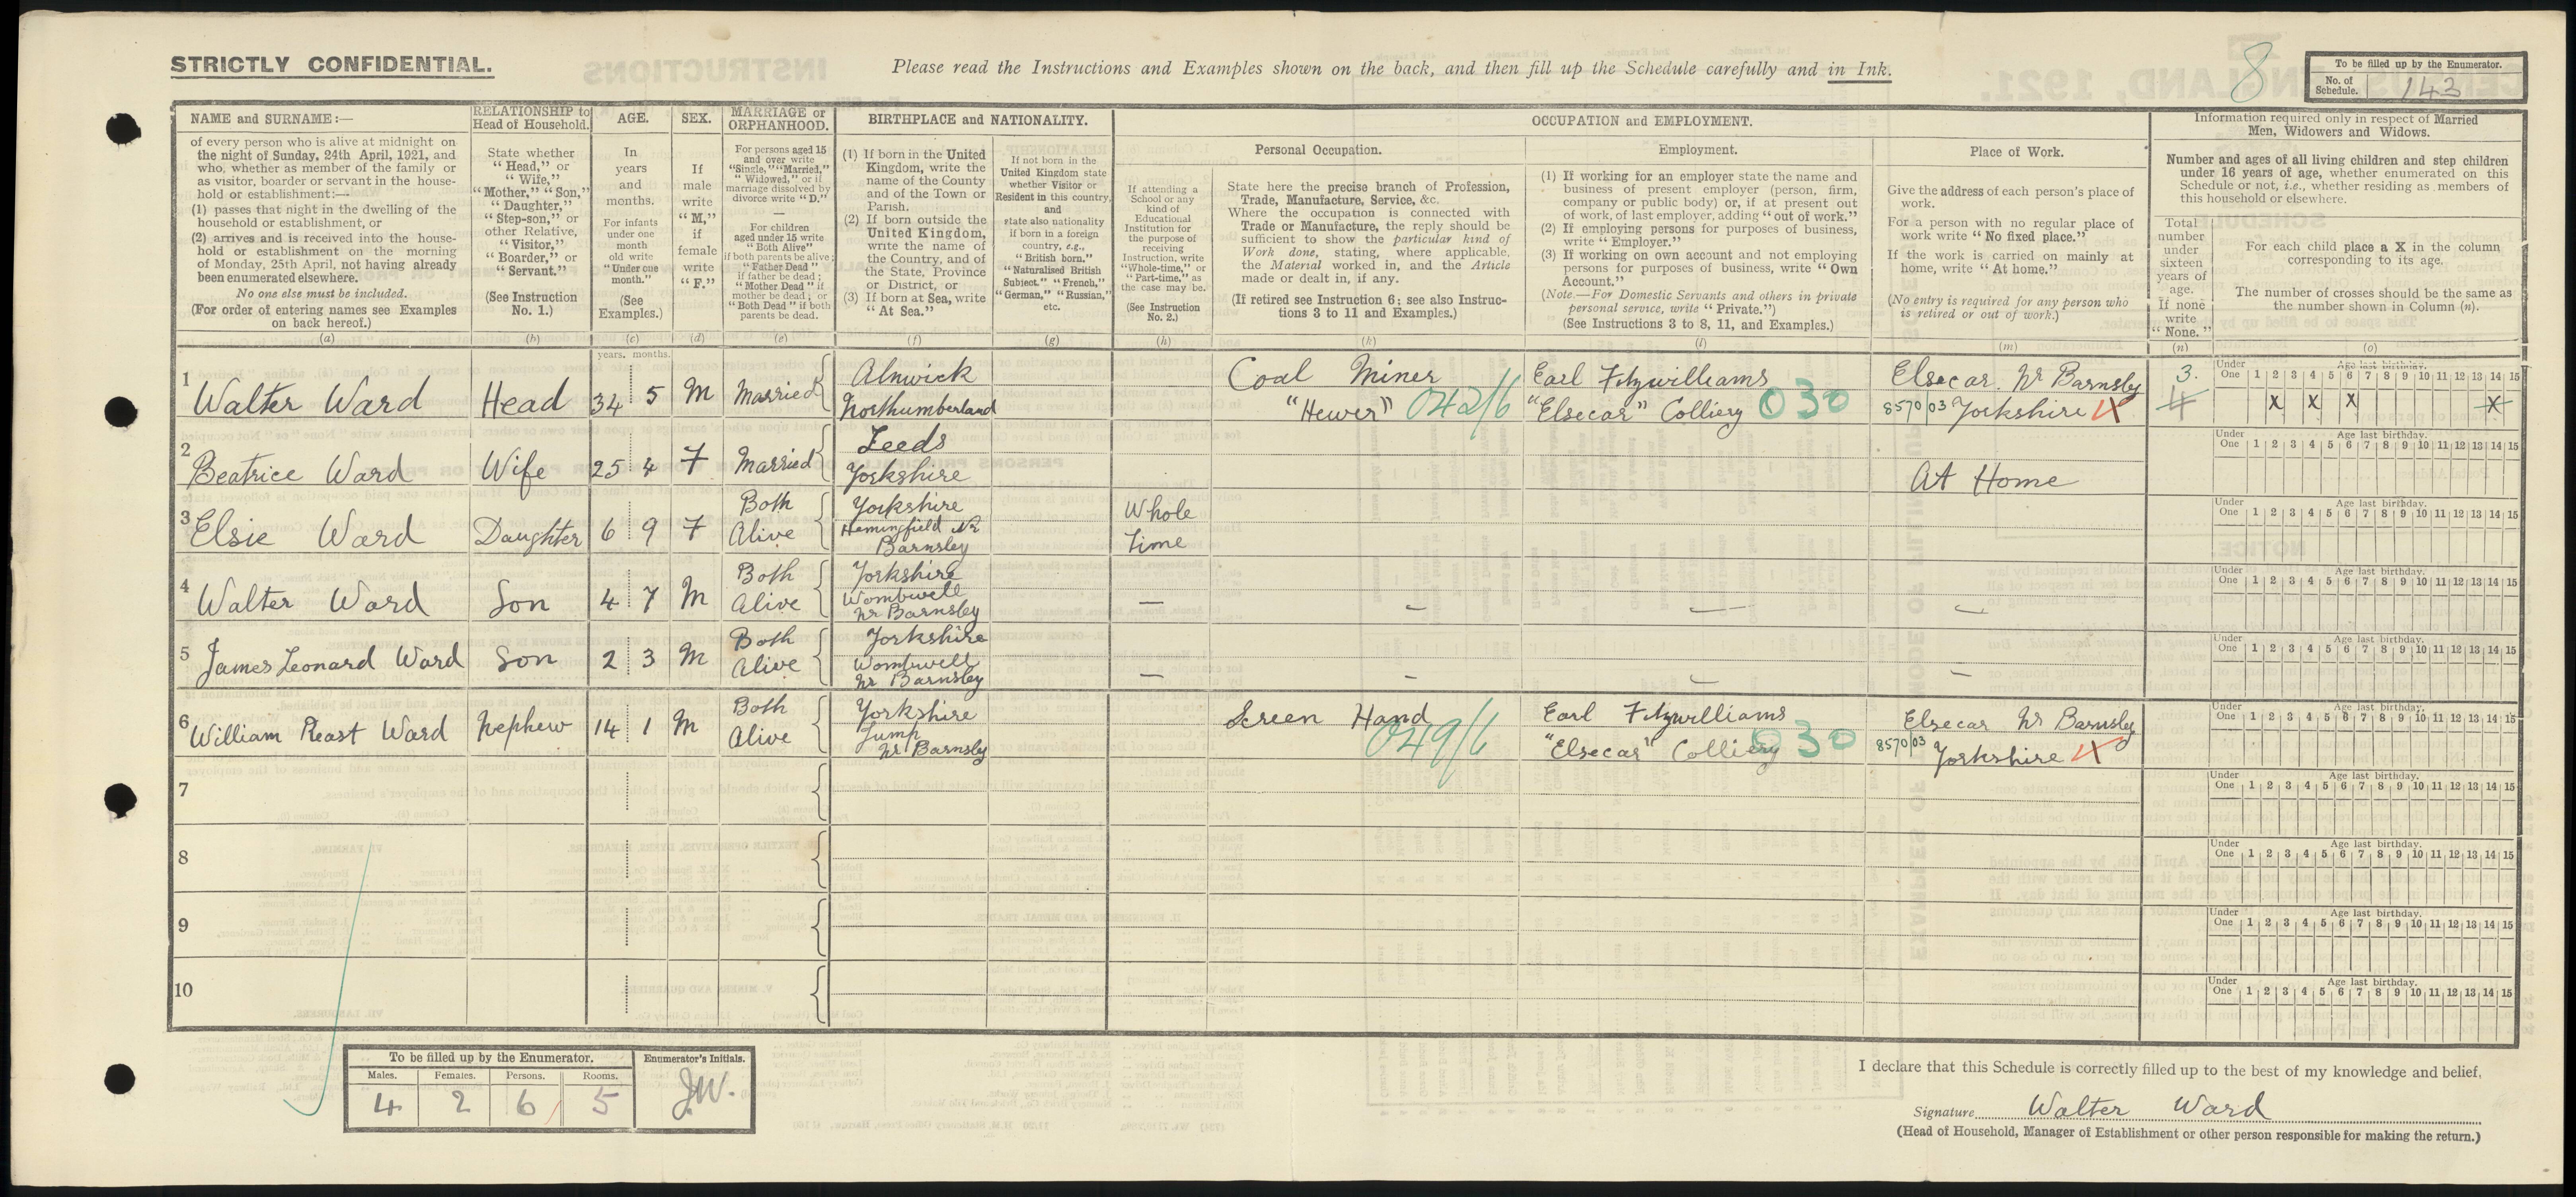 STRICTLY CONFIDENTIAL.
Please read the Instructions and Examples shown on the back, and then fill up the Schedule carefully and in Ink.
8
To be filled up by the Enumerator.
No. of Schedule. 143
NAME and SURNAME:—
of every person who is alive at midnight on
the night of Sunday, 24th April, 1921, and
who, whether as member of the family or
as visitor, boarder or servant in the house-
hold or establishment:—
(1) passes that night in the dwelling of the
household or establishment, or
(2) arrives and is received into the house-
hold or establishment on the morning
of Monday, 25th April, not having already
been enumerated elsewhere.
No one else must be included.
(For order of entering names see Examples
on back hereof.)
(a)
RELATIONSHIP to
Head of Household.
State whether
"Head," or
"Wife,"
"Mother," "Son,"
"Daughter,"
"Step-son," or
other Relative,
"Visitor,"
"Boarder," or
"Servant."
(See Instruction
No. 1.)
(b)
AGE.
In
years
and
months.
For infants
under one
month
old write
"Under one
month."
(See
Examples.)
(c)
years. months.
SEX.
If
male
write
"M,"
if
female
write
"F."
(d)
MARRIAGE or
ORPHANHOOD.
For persons aged 15
and over write
"Single," "Married,"
"Widowed," or if
marriage dissolved by
divorce write "D."
—
For children
aged under 15 write
"Both Alive"
if both parents be alive;
"Father Dead"
if father be dead;
"Mother Dead" if
mother be dead; or
"Both Dead" if both
parents be dead.
(e)
BIRTHPLACE and NATIONALITY.
(1) If born in the United
Kingdom, write the
name of the County
and of the Town or
Parish.
(2) If born outside the
United Kingdom,
write the name of
the Country, and of
the State, Province
or District, or
(3) If born at Sea, write
"At Sea."
(f)
If not born in the
United Kingdom state
whether Visitor or
Resident in this country,
and
state also nationality
if born in a foreign
country, e.g.,
"British born."
"Naturalised British
Subject." "French,"
"German," "Russian,"
etc.
(g)
OCCUPATION and EMPLOYMENT.
If attending a
School or any
kind of
Educational
Institution for
the purpose of
receiving
Instruction, write
"Whole-time," or
"Part-time," as
the case may be.
(See Instruction
No. 2.)
(h)
Personal Occupation.
State here the precise branch of Profession,
Trade, Manufacture, Service, &c.
Where the occupation is connected with
Trade or Manufacture, the reply should be
sufficient to show the particular kind of
Work done, stating, where applicable,
the Material worked in, and the Article
made or dealt in, if any.
(If retired see Instruction 6; see also Instruc-
tions 3 to 11 and Examples.)
(k)
Employment.
(1) If working for an employer state the name and
business of present employer (person, firm,
company or public body) or, if at present out
of work, of last employer, adding "out of work."
(2) If employing persons for purposes of business,
write "Employer."
(3) If working on own account and not employing
persons for purposes of business, write "Own
Account."
(Note.—For Domestic Servants and others in private
personal service, write "Private.")
(See Instructions 3 to 8, 11, and Examples.)
(l)
Place of Work.
Give the address of each person's place of
work.
For a person with no regular place of
work write "No fixed place."
If the work is carried on mainly at
home, write "At home."
(No entry is required for any person who
is retired or out of work.)
(m)
Information required only in respect of Married
Men, Widowers and Widows.
Number and ages of all living children and step children
under 16 years of age, whether enumerated on this
Schedule or not, i.e., whether residing as members of
this household or elsewhere.
Total
number
under
sixteen
years of
age.
If none
write
"None."
(n)
For each child place a X in the column
corresponding to its age.
The number of crosses should be the same as
the number shown in Column (n).
(o)
1 Walter Ward Head 34 5 M Married Alnwick Northumberland Coal Miner "Hewer" 042/6 Earl Fitzwilliams "Elsecar" Colliery 030 Elsecar Nr Barnsley 8570/03 Yorkshire 3. 4 X X X X
Under One 1 2 3 4 5 6 7 8 9 10 11 12 13 14 15
Age last birthday.
2 Beatrice Ward Wife 25 4 F Married Leeds Yorkshire At Home
Under One 1 2 3 4 5 6 7 8 9 10 11 12 13 14 15
Age last birthday.
3 Elsie Ward Daughter 6 9 F Both Alive Yorkshire Hemingfield Nr Barnsley Whole Time
Under One 1 2 3 4 5 6 7 8 9 10 11 12 13 14 15
Age last birthday.
4 Walter Ward Son 4 7 M Both Alive Yorkshire Wombwell Nr Barnsley — — — —
Under One 1 2 3 4 5 6 7 8 9 10 11 12 13 14 15
Age last birthday.
5 James Leonard Ward Son 2 3 M Both Alive Yorkshire Wombwell Nr Barnsley — — — —
Under One 1 2 3 4 5 6 7 8 9 10 11 12 13 14 15
Age last birthday.
6 William Ward Nephew 14 1 M Both Alive Yorkshire Jump Nr Barnsley Screen Hand 049/6 Earl Fitzwilliams "Elsecar" Colliery 030 Elsecar Nr Barnsley 8570/03 Yorkshire
Under One 1 2 3 4 5 6 7 8 9 10 11 12 13 14 15
Age last birthday.
7
Under One 1 2 3 4 5 6 7 8 9 10 11 12 13 14 15
Age last birthday.
8
Under One 1 2 3 4 5 6 7 8 9 10 11 12 13 14 15
Age last birthday.
9
Under One 1 2 3 4 5 6 7 8 9 10 11 12 13 14 15
Age last birthday.
10
Under One 1 2 3 4 5 6 7 8 9 10 11 12 13 14 15
Age last birthday.
To be filled up by the Enumerator.
Males. Females. Persons. Rooms.
4 2 6 5
Enumerator's Initials.
J.W.
I declare that this Schedule is correctly filled up to the best of my knowledge and belief.
Signature Walter Ward
(Head of Household, Manager of Establishment or other person responsible for making the return.)